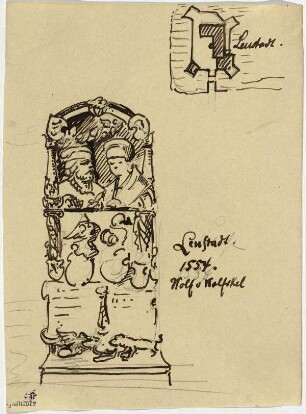 Lenstadt.
Lenstadt.
1554.
Wolf v Wolfskel